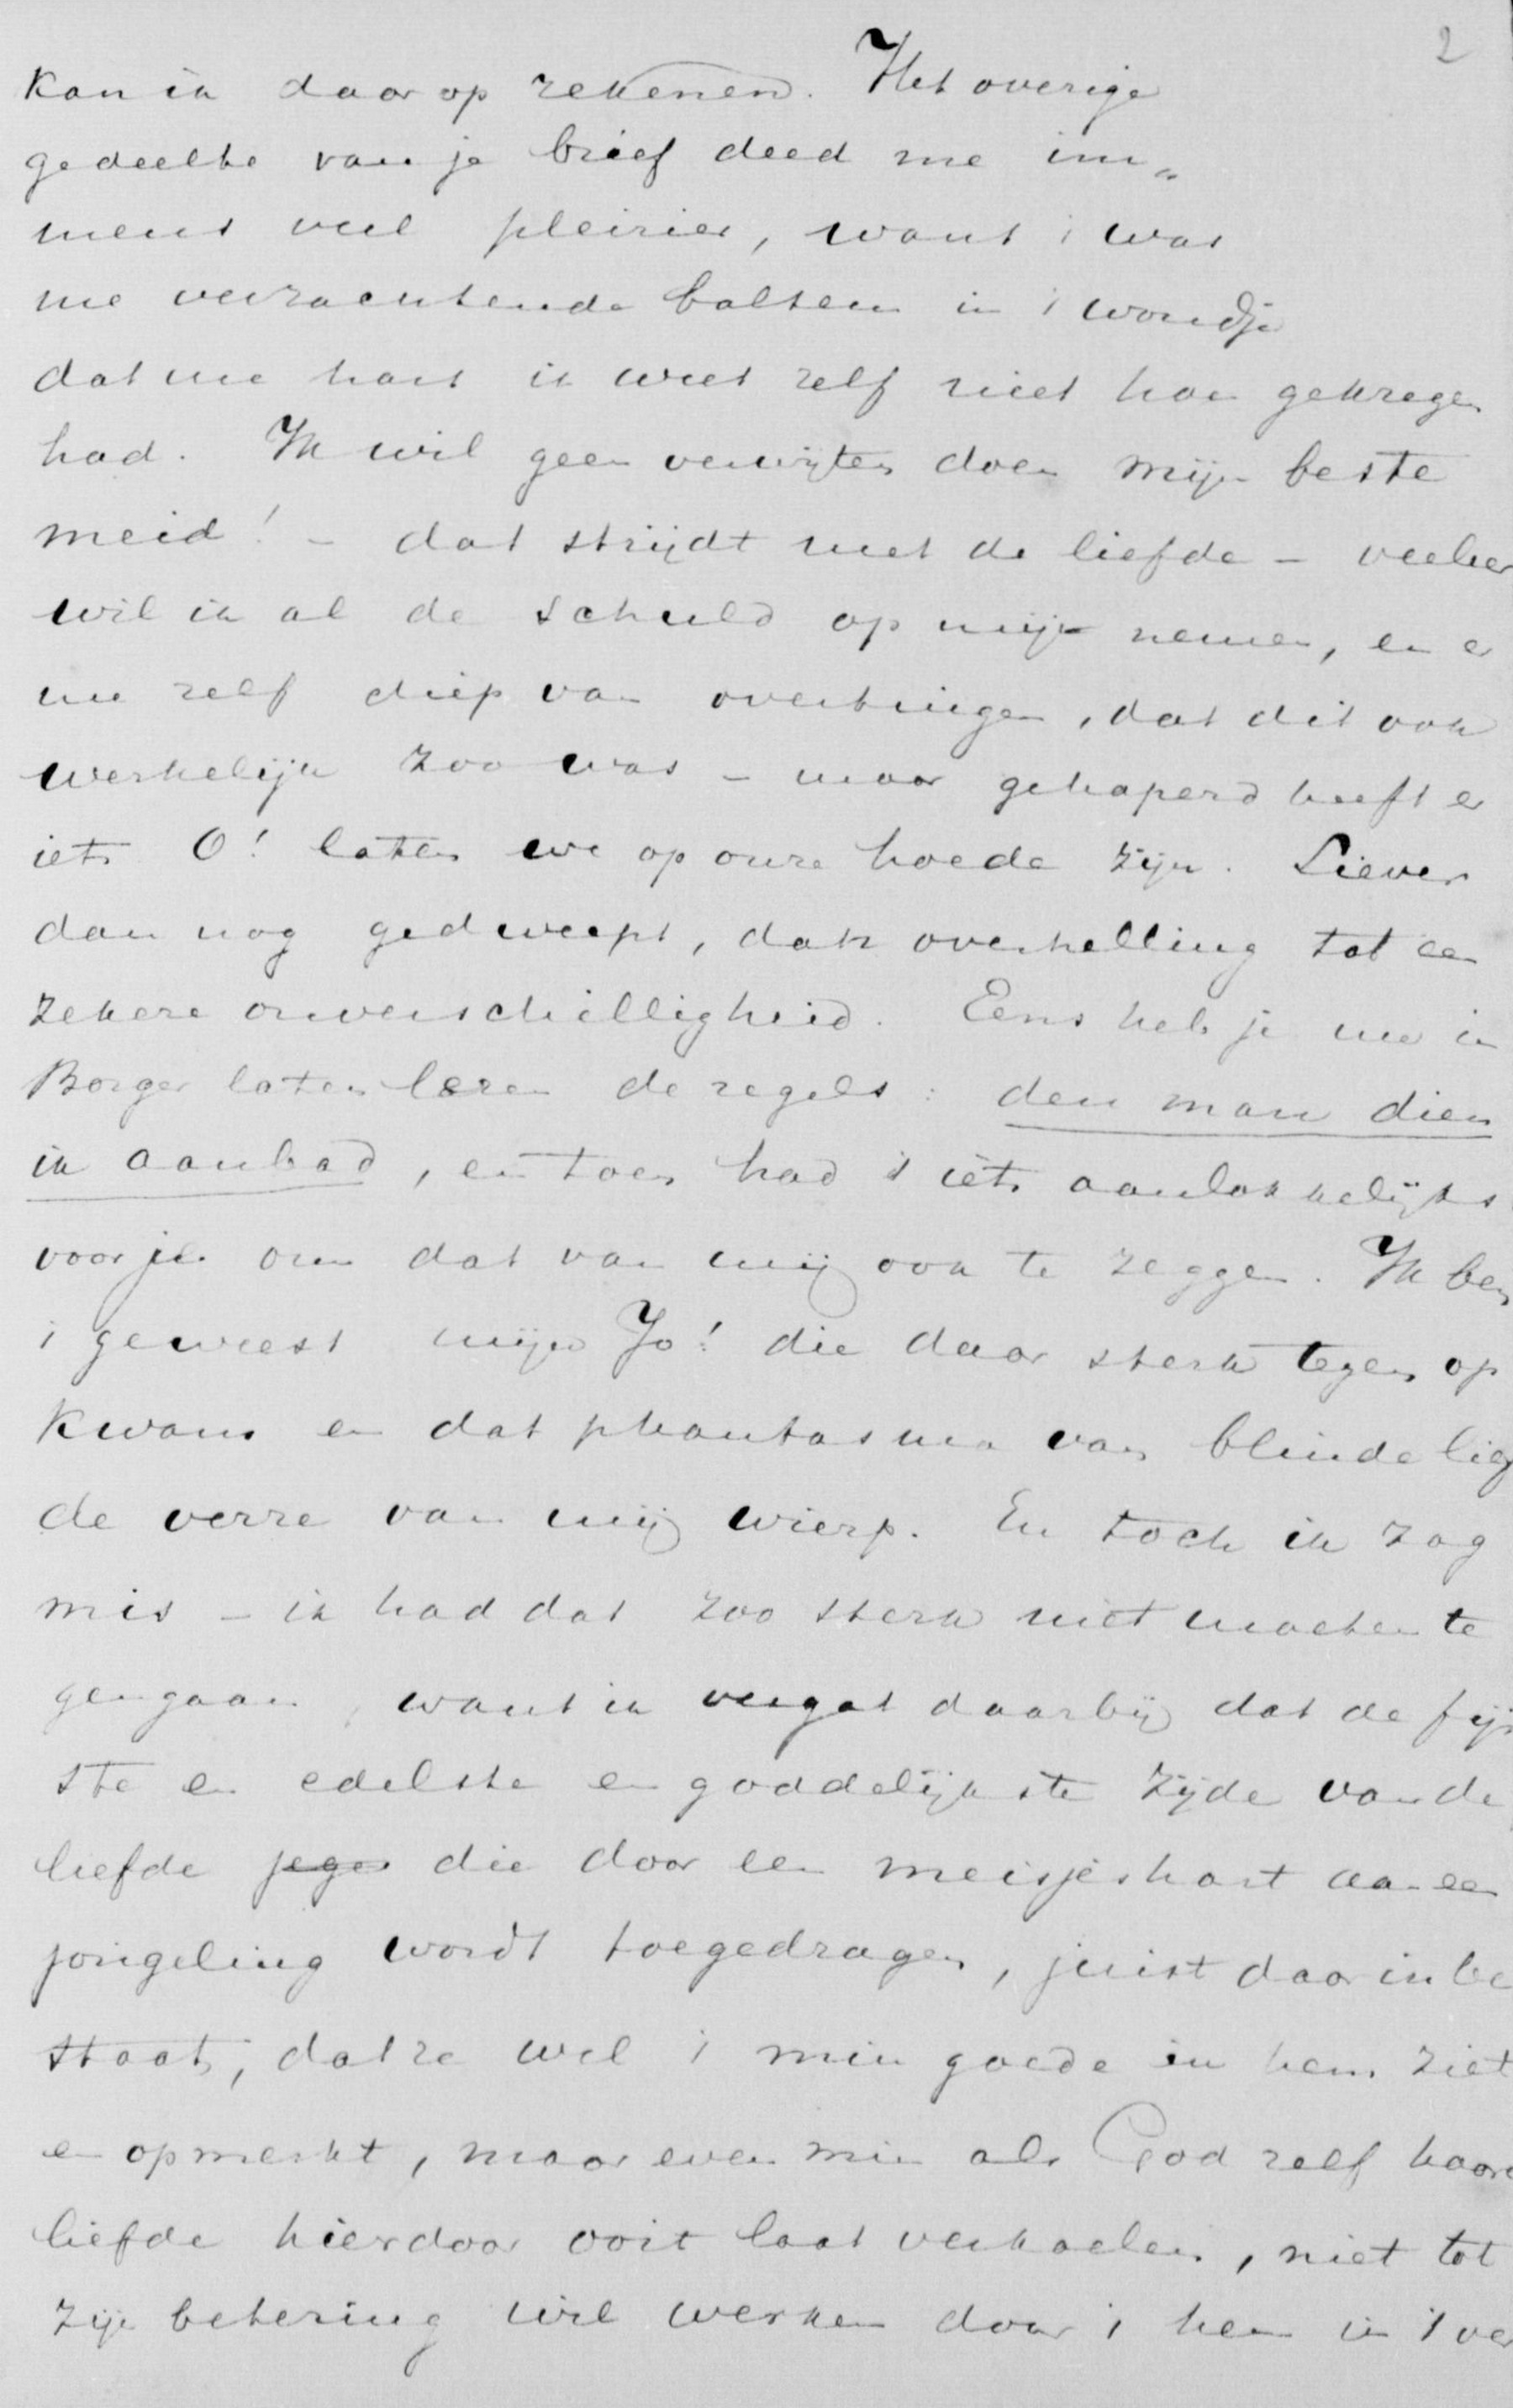 2
kan ik daar op rekenen. Het overige
gedeelte van je brief deed me im„
mens veel pleizier, want 't was
me verzachtende balsem in 't wondje
dat me hart ik weet zelf niet hoe gekregen
had. Ik wil geen verwijten doen mijn beste
meid! – dat strijdt met de liefde – veeleer
wil ik al de schuld op mij nemen, en er
me zelf diep van overtuigen, dat dit ook
werkelijk zoo was – maar gehaperd heeft er
iets O! laten we op onze hoede zijn. Liever
dan nog gedweept, dan overhelling tot een
zekere onverschilligheid. Eens heb je me in
Borger laten lezen de regels: den man dien
ik aanbad, en toen had 't iets aanlokkelijks
voor je om dat van mij ook te zeggen. Ik ben
't geweest mijn Jo! die daar sterk tegen op
kwam en dat phantasma van blinde lief
de verre van mij wierp. En toch ik zag
mis – ik had dat zoo sterk niet moeten te
gengaan, want ik vergat daarbij dat de fijn
ste en edelste en goddelijkste zijde van de
liefde jegen die door een meisjeshart aan een
jongeling wordt toegedragen, juist daar in be
staat, dat ze wel 't min goede in hem ziet
en opmerkt, maar even min als God zelf haar
liefde hierdoor ooit laat verkoelen, niet tot
zijn betering wil werken door 't hem in 't ver